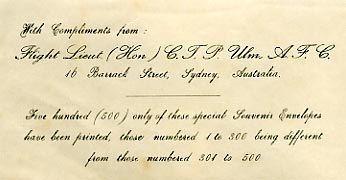 With Compliments from:
Flight Lieut (Hon) C. T. P. Ulm A. F. C.
16 Barrack Street, Sydney, Australia.
Five hundred (500) only of these special Souvenir Envelopes
have been printed, those numbered 1 to 300 being different
from those numbered 301 to 500